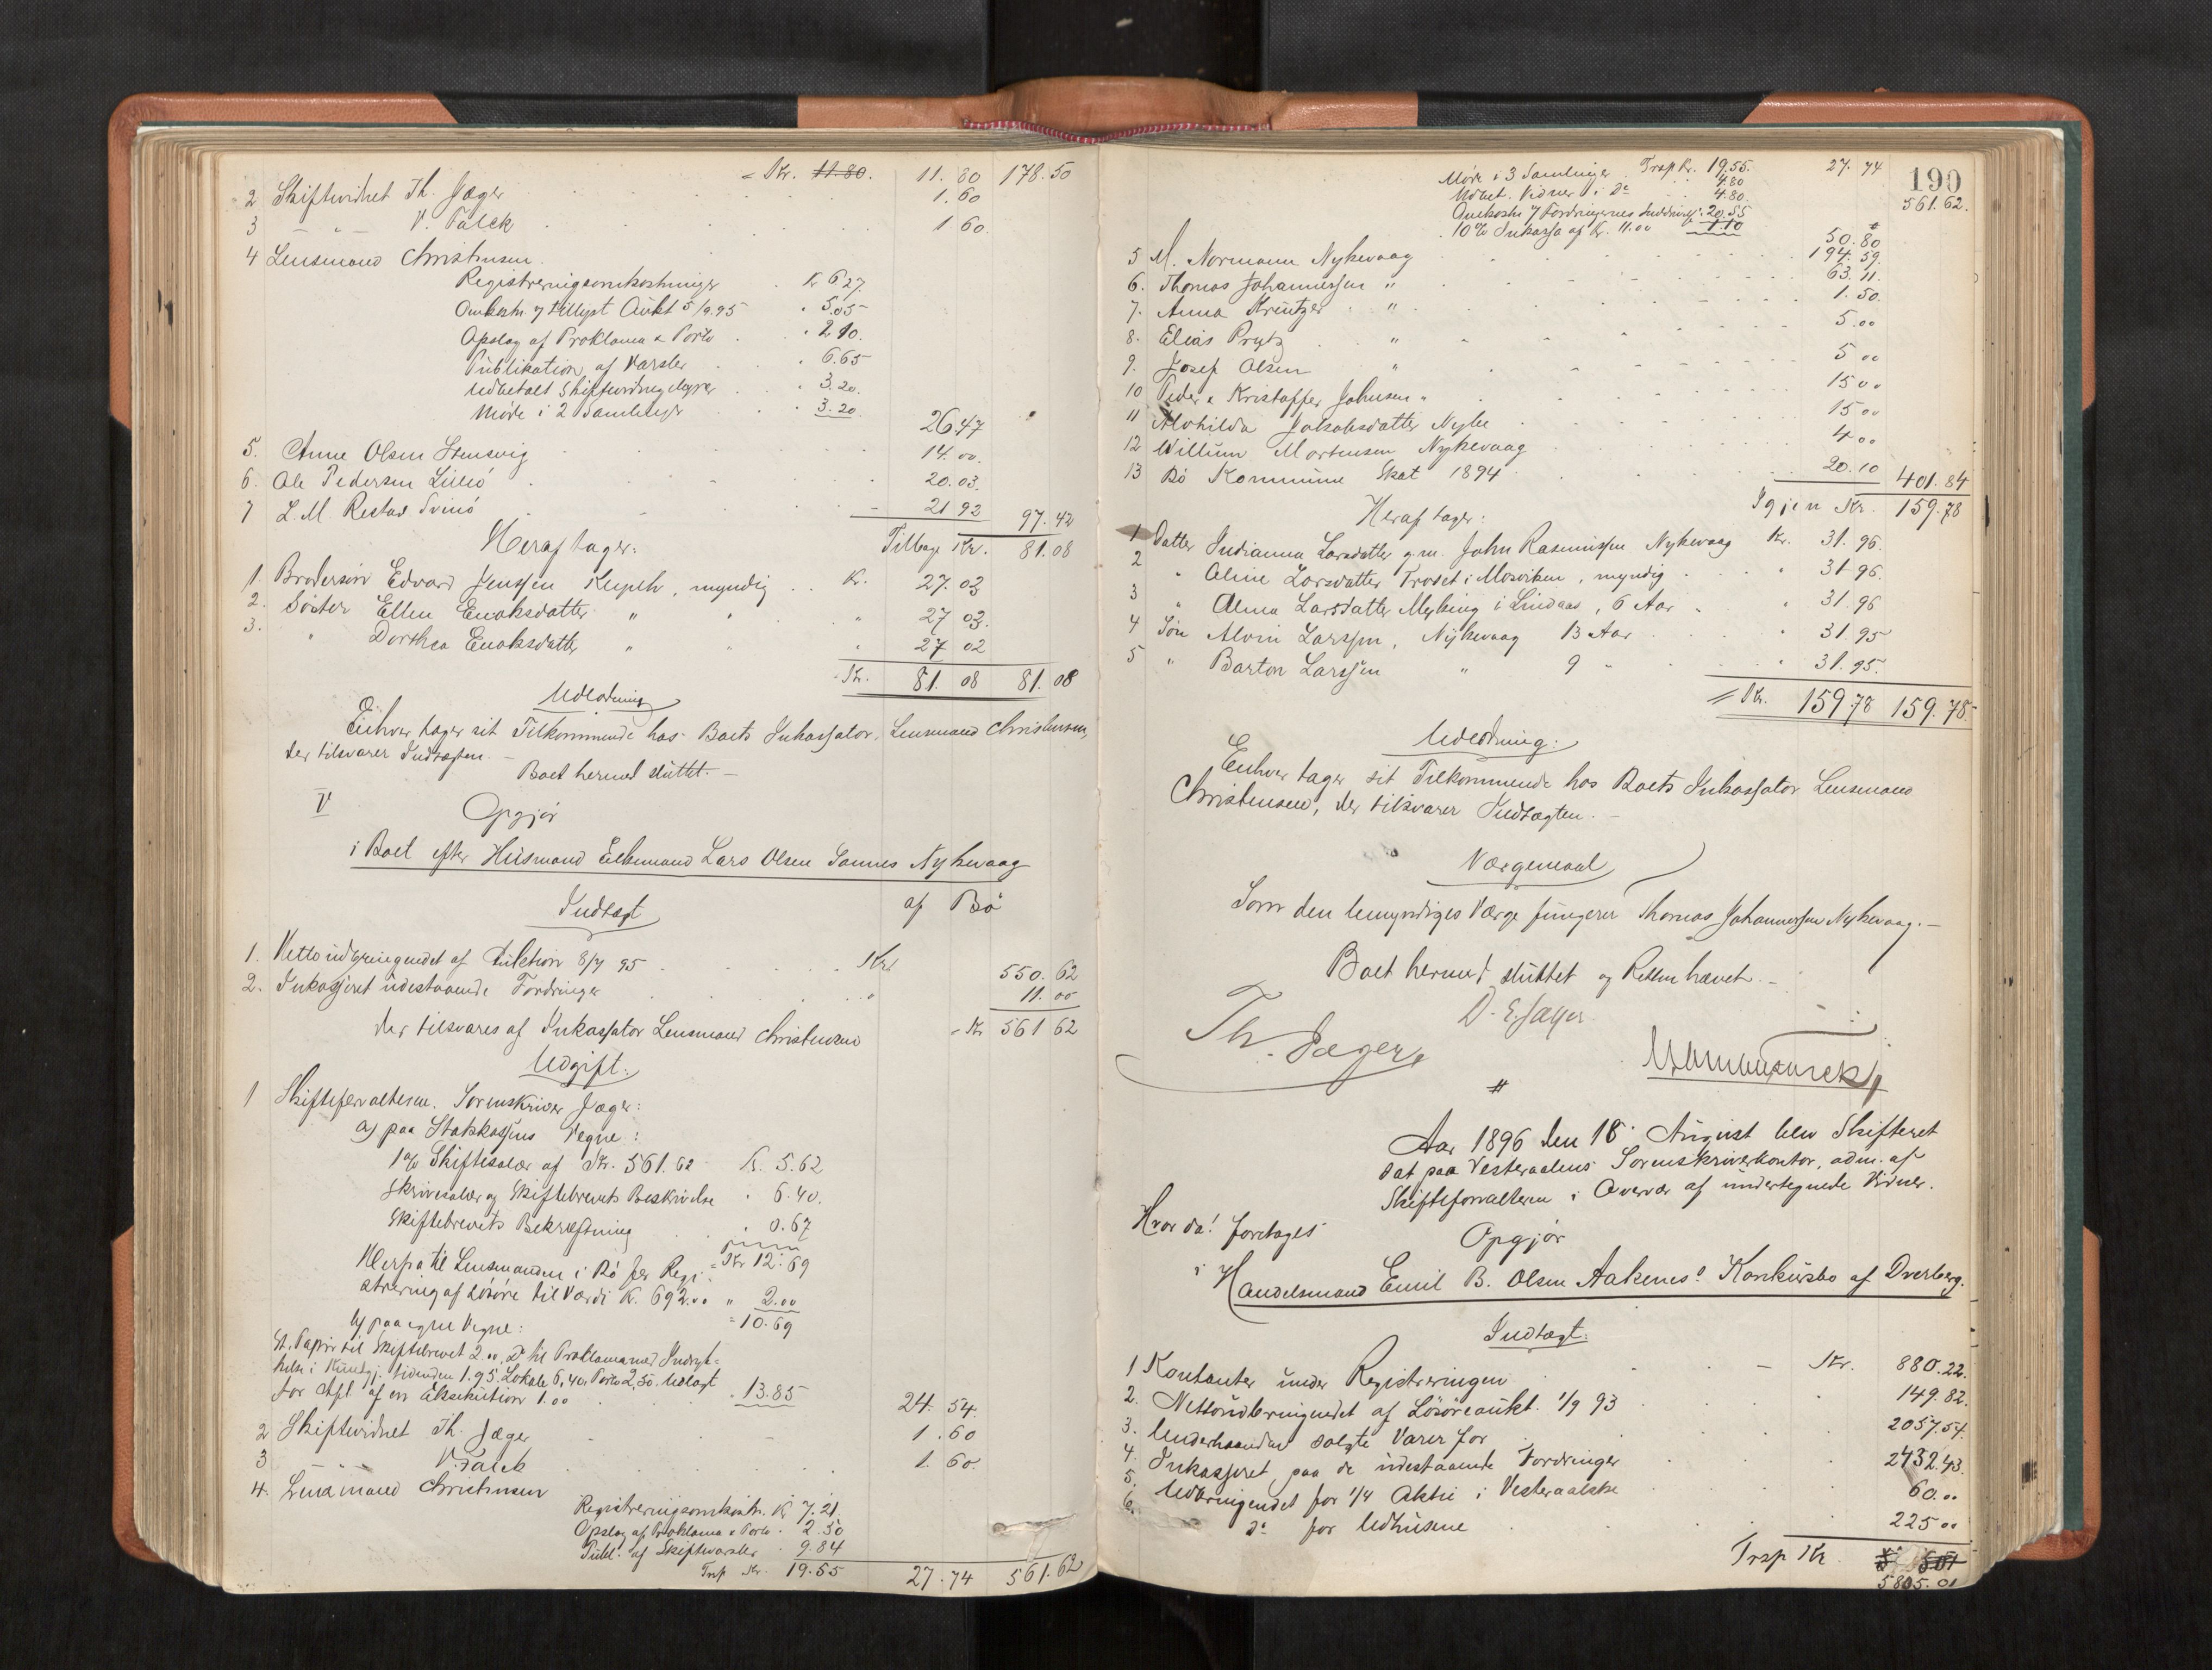 = Kr. 11.80. 11.80 178.50
2 Skiftevidnet Th. Jæger 1.60
3 " V. Falck 1 60.
4 Lensmand Christensen.
Registreringsomkostninger Kr 6 27
Omkostn. v/ tillyst Aukt 5/9.95 " 5.05
Opslag af Proklama & Porto " 2 10.
Publikation af Varsler " 6.65
Udbetalt Skiftevidnerne " 3.20.
Møde i 2 Samlinger " 3.20. 26.47
5. Anne Olsen Stensvig 14.00.
6. Ole Pedersen Lillø 20.03.
7 L. M. Restad Svinø 21 92 97.42
Heraf tager: Tilbage Kr. 81.08
1. Brodersøn Edvard Jenssen , myndig Kr. 27.03
2. Søster Ellen Enoksdatter " " " 27 03.
3. " Dorthea Enoksdatter " " " 27 02
Kr. 81. 08 81.08
Udlodning
Enhver tager sit Tilkommende hos Boets Inkassator, Lensmand Christensen,
der tilsvarer Indtægten. –
Boet hermed sluttet. –
V Opgjør
i Boet efter Husmand Enkemand Lars Olsen Sannes Nykvaag
af Bø
Indtægt
1. Netto udbringendet af Auktion 8/7 95 Kr. 550.62
2. Inkasseret udestaaende Fordringer " 11.00
der tilsvares af Inkassator Lensmand Christensen = Kr 561 62
Udgift:
1 Skifteforvalteren. Sorenskriver Jæger:
a) paa Statskassens Vegne:
1% Skiftesalær af Kr. 561.62 Kr. 5.62
Skrivesalær og Skiftebrevets Beskrivelse " 6.40.
Skiftebrevets Bekræftning " 0.67
= Kr 12.69
Herfra til Lensmanden i Bø for Regi-
strering af Løsøre til Værdi K. 692.00 " 2.00
= 10.69
b) paa egne Vegne:
St. Papir til Skiftebrevet 2.00, Do til Proklama med Indryk-
kelse i Kundgj. tidenden 1.95. Lokale 6,40. Porto 2,50. Udlagt
for Afl. af en Eksekution 1.00 " 13.85 24. 54.
2 Skiftevidnet Th. Jæger 1.60
3 " V. Falck 1. 60.
4. Lensmand Christensen
Registreringsomkostn. Kr 7.21.
Opslag af Proklama & Porto " 2.50
Publ. af Skiftevarsler " 9.84
Trsp Kr. 19.55 27.74 561.62
190
Trsp Kr. 19.55. 27.74 561.62.
Møde i 3 Samlinger 4.80
Udbet. Vidner i Do 4.80.
Omkostn v/ Fordringernes Inddrivelse 20.55
10% Inkasso af Kr. 11.00 1.10 50.80
5 M. Normann Nykvaag 194.59.
6. Thomas Johannessen " 63.11.
7. Anna Kreutzer " 1.50.
8. Elias Prytz " 5.00
9. Josef Olsen " 5 00
10 Peder & Kristoffer Johnsen " 15 00
11 Alvhilda Jakobsdatter Nyke 15 00
12 Willum Mortensen Nykvaag 4 00
13 Bø Kommune Skat 1894 20.10 401.84
Heraf tager: Igjen Kr. 159.78
1 Datter Indianna Larsdatter g.m. John Rasmussen Nykvaag Kr. 31. 96.
2 " Oline Larsdatter Froset i Mosviken, myndig " 31 96.
3 " Alma Larsdatter Myking i Lindaas, 6 Aar " 31.96
4 Søn Alvin Larssen, Nykvaag 13 Aar " 31.95
5 " Barton Larssen " 9 " " 31.95.
= Kr. 159 78 159.78.
Udlodning:
Enhver tager sit Tilkommende hos Boets Inkassator Lensmand
Christensen, der tilsvarer Indtægten. –
Værgemaal
Som den umyndiges Værge fungerer Thomas Johannessen Nykvaag. –
Boet hermed sluttet og Retten hævet. –
D. E. Jæger
Th. Jæger
#
Aar 1896 den 18. August blev Skifteret
sat paa Vesteraalens Sorenskriverkontor, adm. af
Skifteforvalteren i Overvær af undertegnede Vidner.
Hvor da! foretages
Opgjør
i Handelsmand Emil B. Olsen Aaknes' Konkursbo af Dverberg.
Indtægt:
1 Kontanter under Registreringen – Kr. 880.22.
2. Nettoudbringendet af Løsøreaukt. 1/9 93 149.82.
3. Underhaanden solgte Varer for 2057.54.
4. Inkasseret paa de udestaaende Fordringer 2432.43.
5. Udbringendet for 1/4 Aktie i Vesteraalske 60.00
6. Do for Udhusene 225 00
Trsp Kr 5805.01